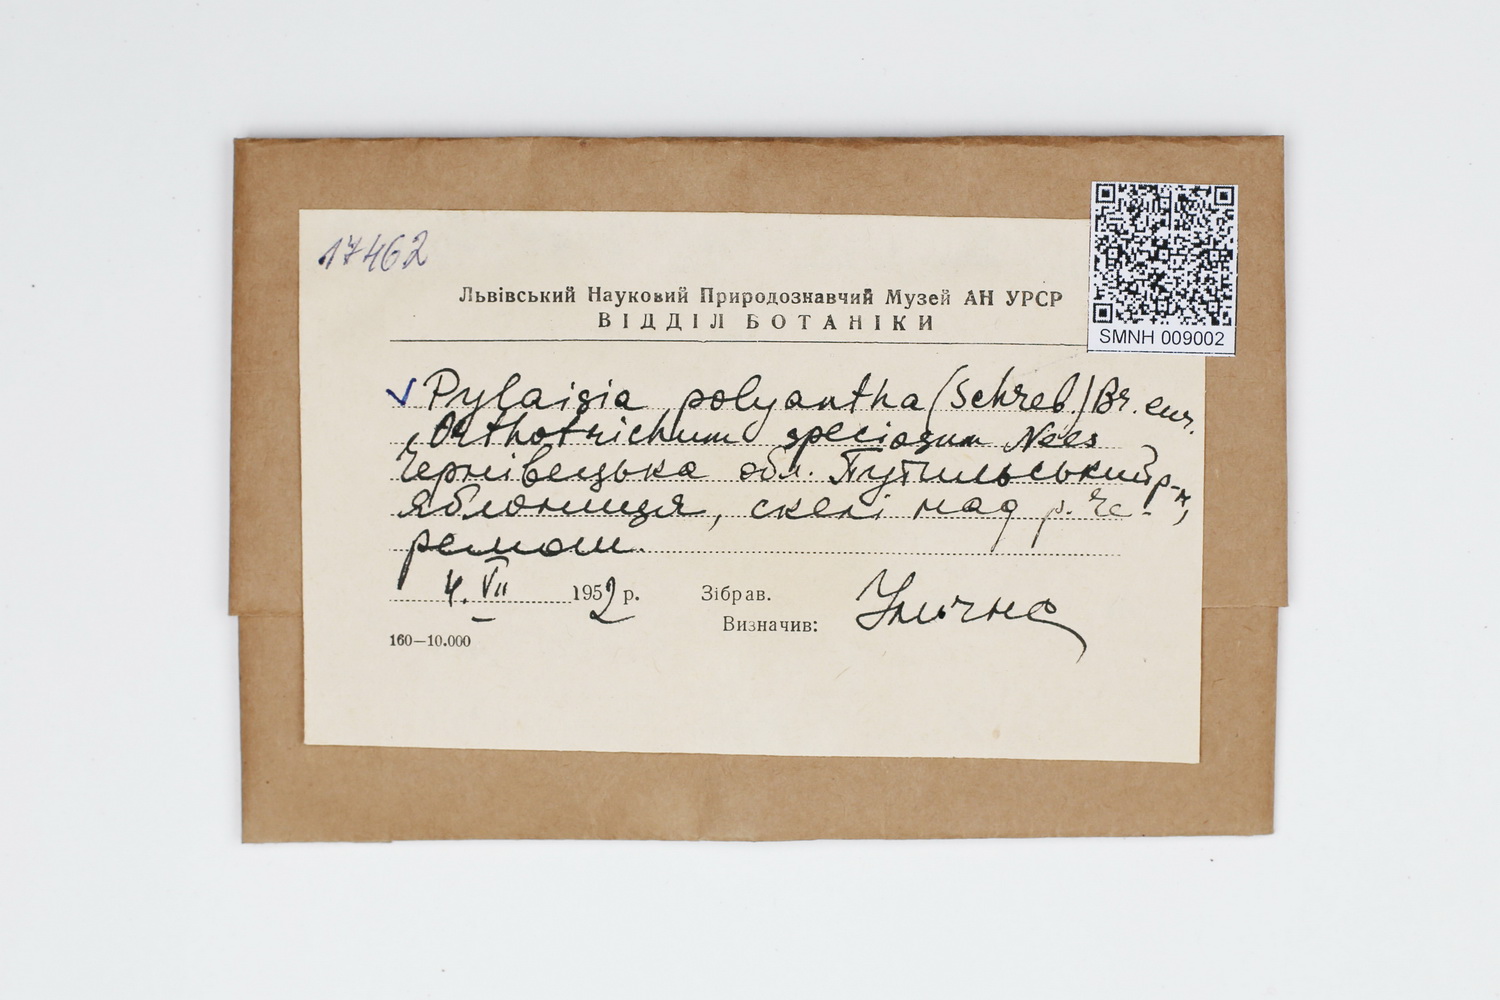 17462
SMNH 009002
Львівський Науковий Природознавчий Музей АН УРСР
ВІДДІЛ БОТАНІКИ
Pylaisia polyantha (Schreb.) Br. eur.
Orthotrichum speciosum Nees
Чернівецька обл. Путильський р-н,
Яблониця, скелі над р. Че-
ремош.
4. VII 1952 р.
Зібрав.
Визначив: Улична
160—10.000